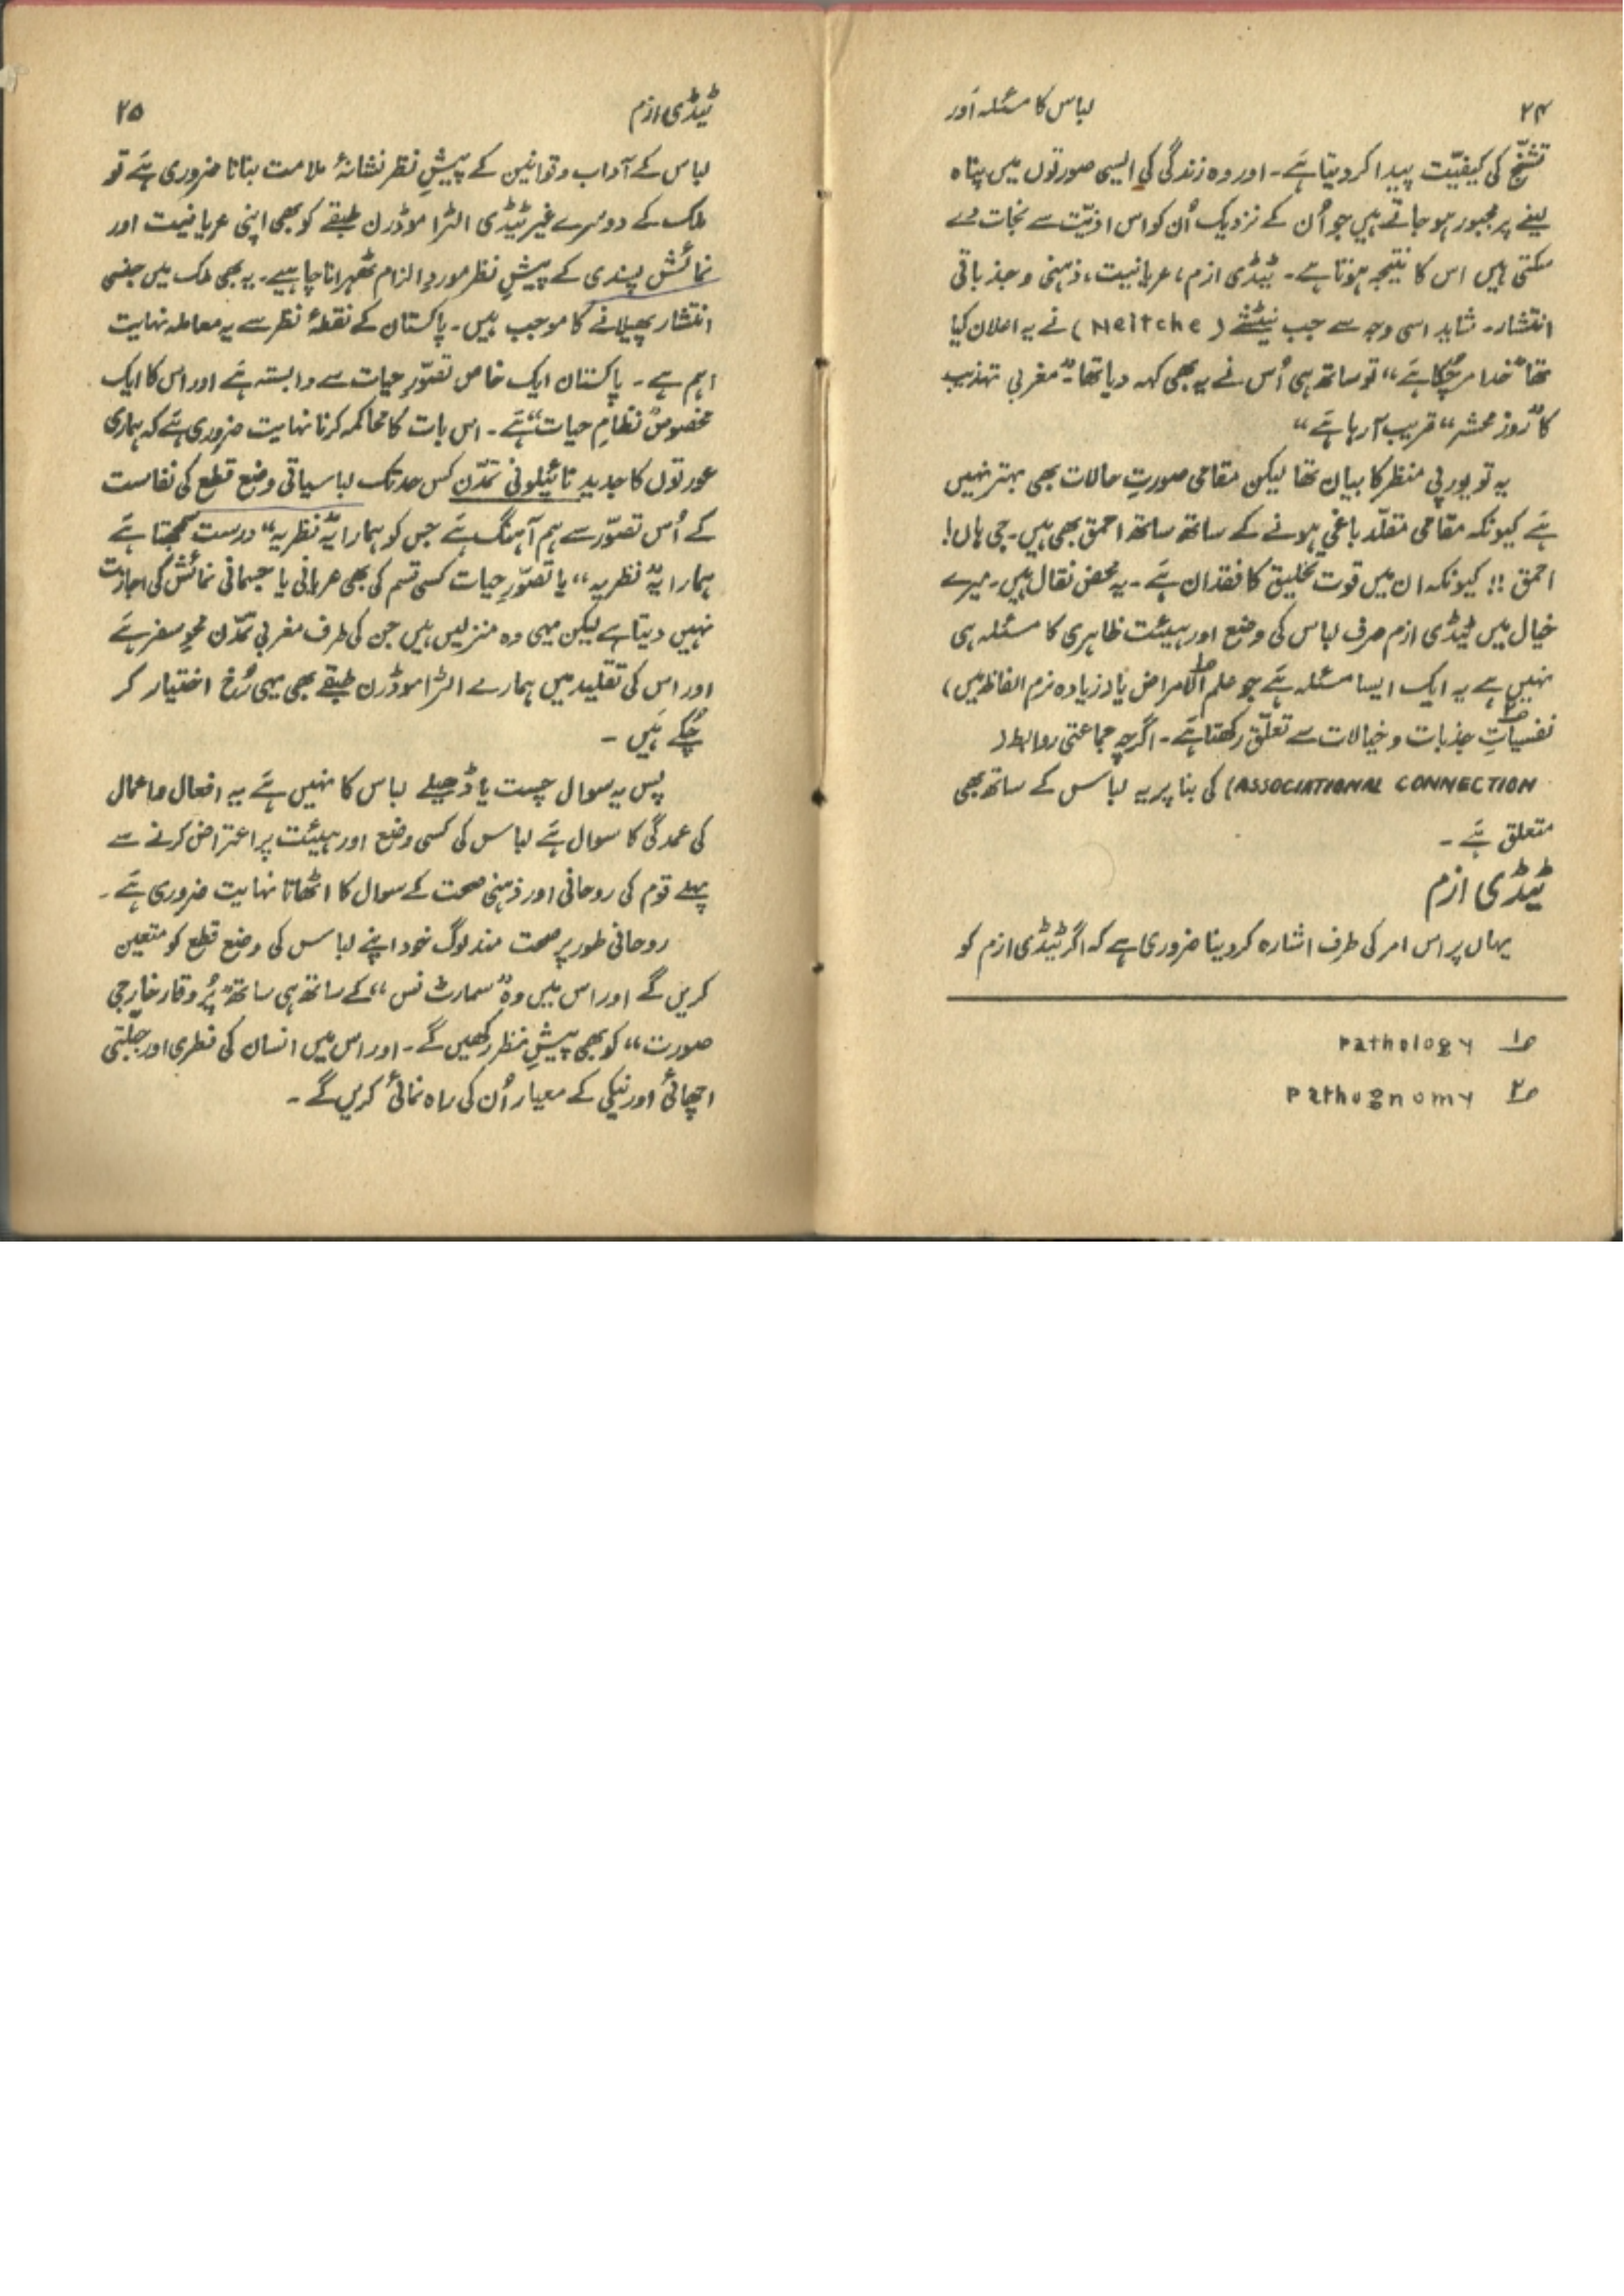 ۲۴ لباس کا مسئلہ اَور
تشنّج کی کیفیّت پیدا کر دیتا ہَے۔ اور وہ زندگی کی ایسی صورتوں میں پناہ
لینے پر مجبور ہو جاتے ہیں جو اُن کے نزدیک اُن کو اس اذیّت سے نجات دے
سکتی ہیں اس کا نتیجہ ہوتا ہے۔ ٹیڈی ازم، عریانیت، ذہنی و جذباتی
انتشار۔ شاید اسی وجہ سے جب نیٹشے (Neitche) نے یہ اعلان کیا
تھا "خدا مر چُکا ہَے" تو ساتھ ہی اُس نے یہ بھی کہہ دیا تھا۔ "مغربی تہذیب
کا "روز محشر" قریب آ رہا ہَے"
یہ تو یورپی منظر کا بیان تھا لیکن مقامی صورتِ حالات بھی بہتر نہیں
ہَے کیونکہ مقامی مقلّد باغی ہونے کے ساتھ ساتھ احمق بھی ہیں۔ جی ہاں!
احمق !! کیونکہ ان میں قوت تخلیق کا فقدان ہَے۔ یہ محض نقال ہیں۔ میرے
خیال میں ٹیڈی ازم صرف لباس کی وضع اور ہیئت ظاہری کا مسئلہ ہی
نہیں ہے یہ ایک ایسا مسئلہ ہَے جو علم الامراض ۱ یا (زیادہ نرم الفاظ میں)
نفسیاتِ ۲ جذبات و خیالات سے تعلّق رکھتا ہَے۔ اگرچہ جماعتی روابط (
ASSOCIATIONAL CONNECTION) کی بنا پر یہ لباس کے ساتھ بھی
متعلق ہَے۔
ٹیڈی ازم
یہاں پر اس امر کی طرف اشارہ کر دینا ضروری ہے کہ اگر ٹیڈی ازم کو
۱ Pathology
۲ Pathognomy
ٹیڈی ازم ۲۵
لباس کے آداب و قوانین کے پیشِ نظر نشانۂ ملامت بنانا ضروری ہَے تو
ملک کے دوسرے غیر ٹیڈی الٹرا موڈرن طبقے کو بھی اپنی عریانیت اور
نمائش پسندی کے پیشِ نظر موردِ الزام ٹھہرانا چاہیے۔ یہ بھی ملک میں جنسی
انتشار پھیلانے کا موجب ہیں۔ پاکستان کے نقطۂ نظر سے یہ معاملہ نہایت
اہم ہے۔ پاکستان ایک خاص تصوّرِ حیات سے وابستہ ہَے اور اس کا ایک
مخصوص "نظامِ حیات" ہَے۔ اس بات کا محاکمہ کرنا نہایت ضروری ہَے کہ ہماری
عورتوں کا جدید نائیلونی تمدّن کس حد تک لباسیاتی وضع قطع کی نفاست
کے اُس تصوّر سے ہم آہنگ ہَے جس کو ہمارا یہ "نظریہ" درست سمجھتا ہَے
ہمارا یہ "نظریہ" یا تصوّرِ حیات کسی قسم کی بھی عریانی یا جسمانی نمائش کی اجازت
نہیں دیتا ہے لیکن یہی وہ منزلیں ہیں جن کی طرف مغربی تمدّن محوِ سفر ہَے
اور اس کی تقلید میں ہمارے الٹرا موڈرن طبقے بھی یہی رُخ اختیار کر
چُکے ہَیں۔
پس یہ سوال چست یا ڈھیلے لباس کا نہیں ہَے یہ افعال و اعمال
کی عمدگی کا سوال ہَے لباس کی کسی وضع اور ہیئت پر اعتراض کرنے سے
پہلے قوم کی روحانی اور ذہنی صحت کے سوال کا اٹھانا نہایت ضروری ہَے۔
روحانی طور پر صحت مند لوگ خود اپنے لباس کی وضع قطع کو متعین
کریں گے اور اس میں وہ "سمارٹ نس" کے ساتھ ہی ساتھ "پُر وقار خارجی
صورت" کو بھی پیشِ نظر رکھیں گے۔ اور اس میں انسان کی فطری اور جبلّتی
اچھائی اور نیکی کے معیار اُن کی راہ نمائی کریں گے۔